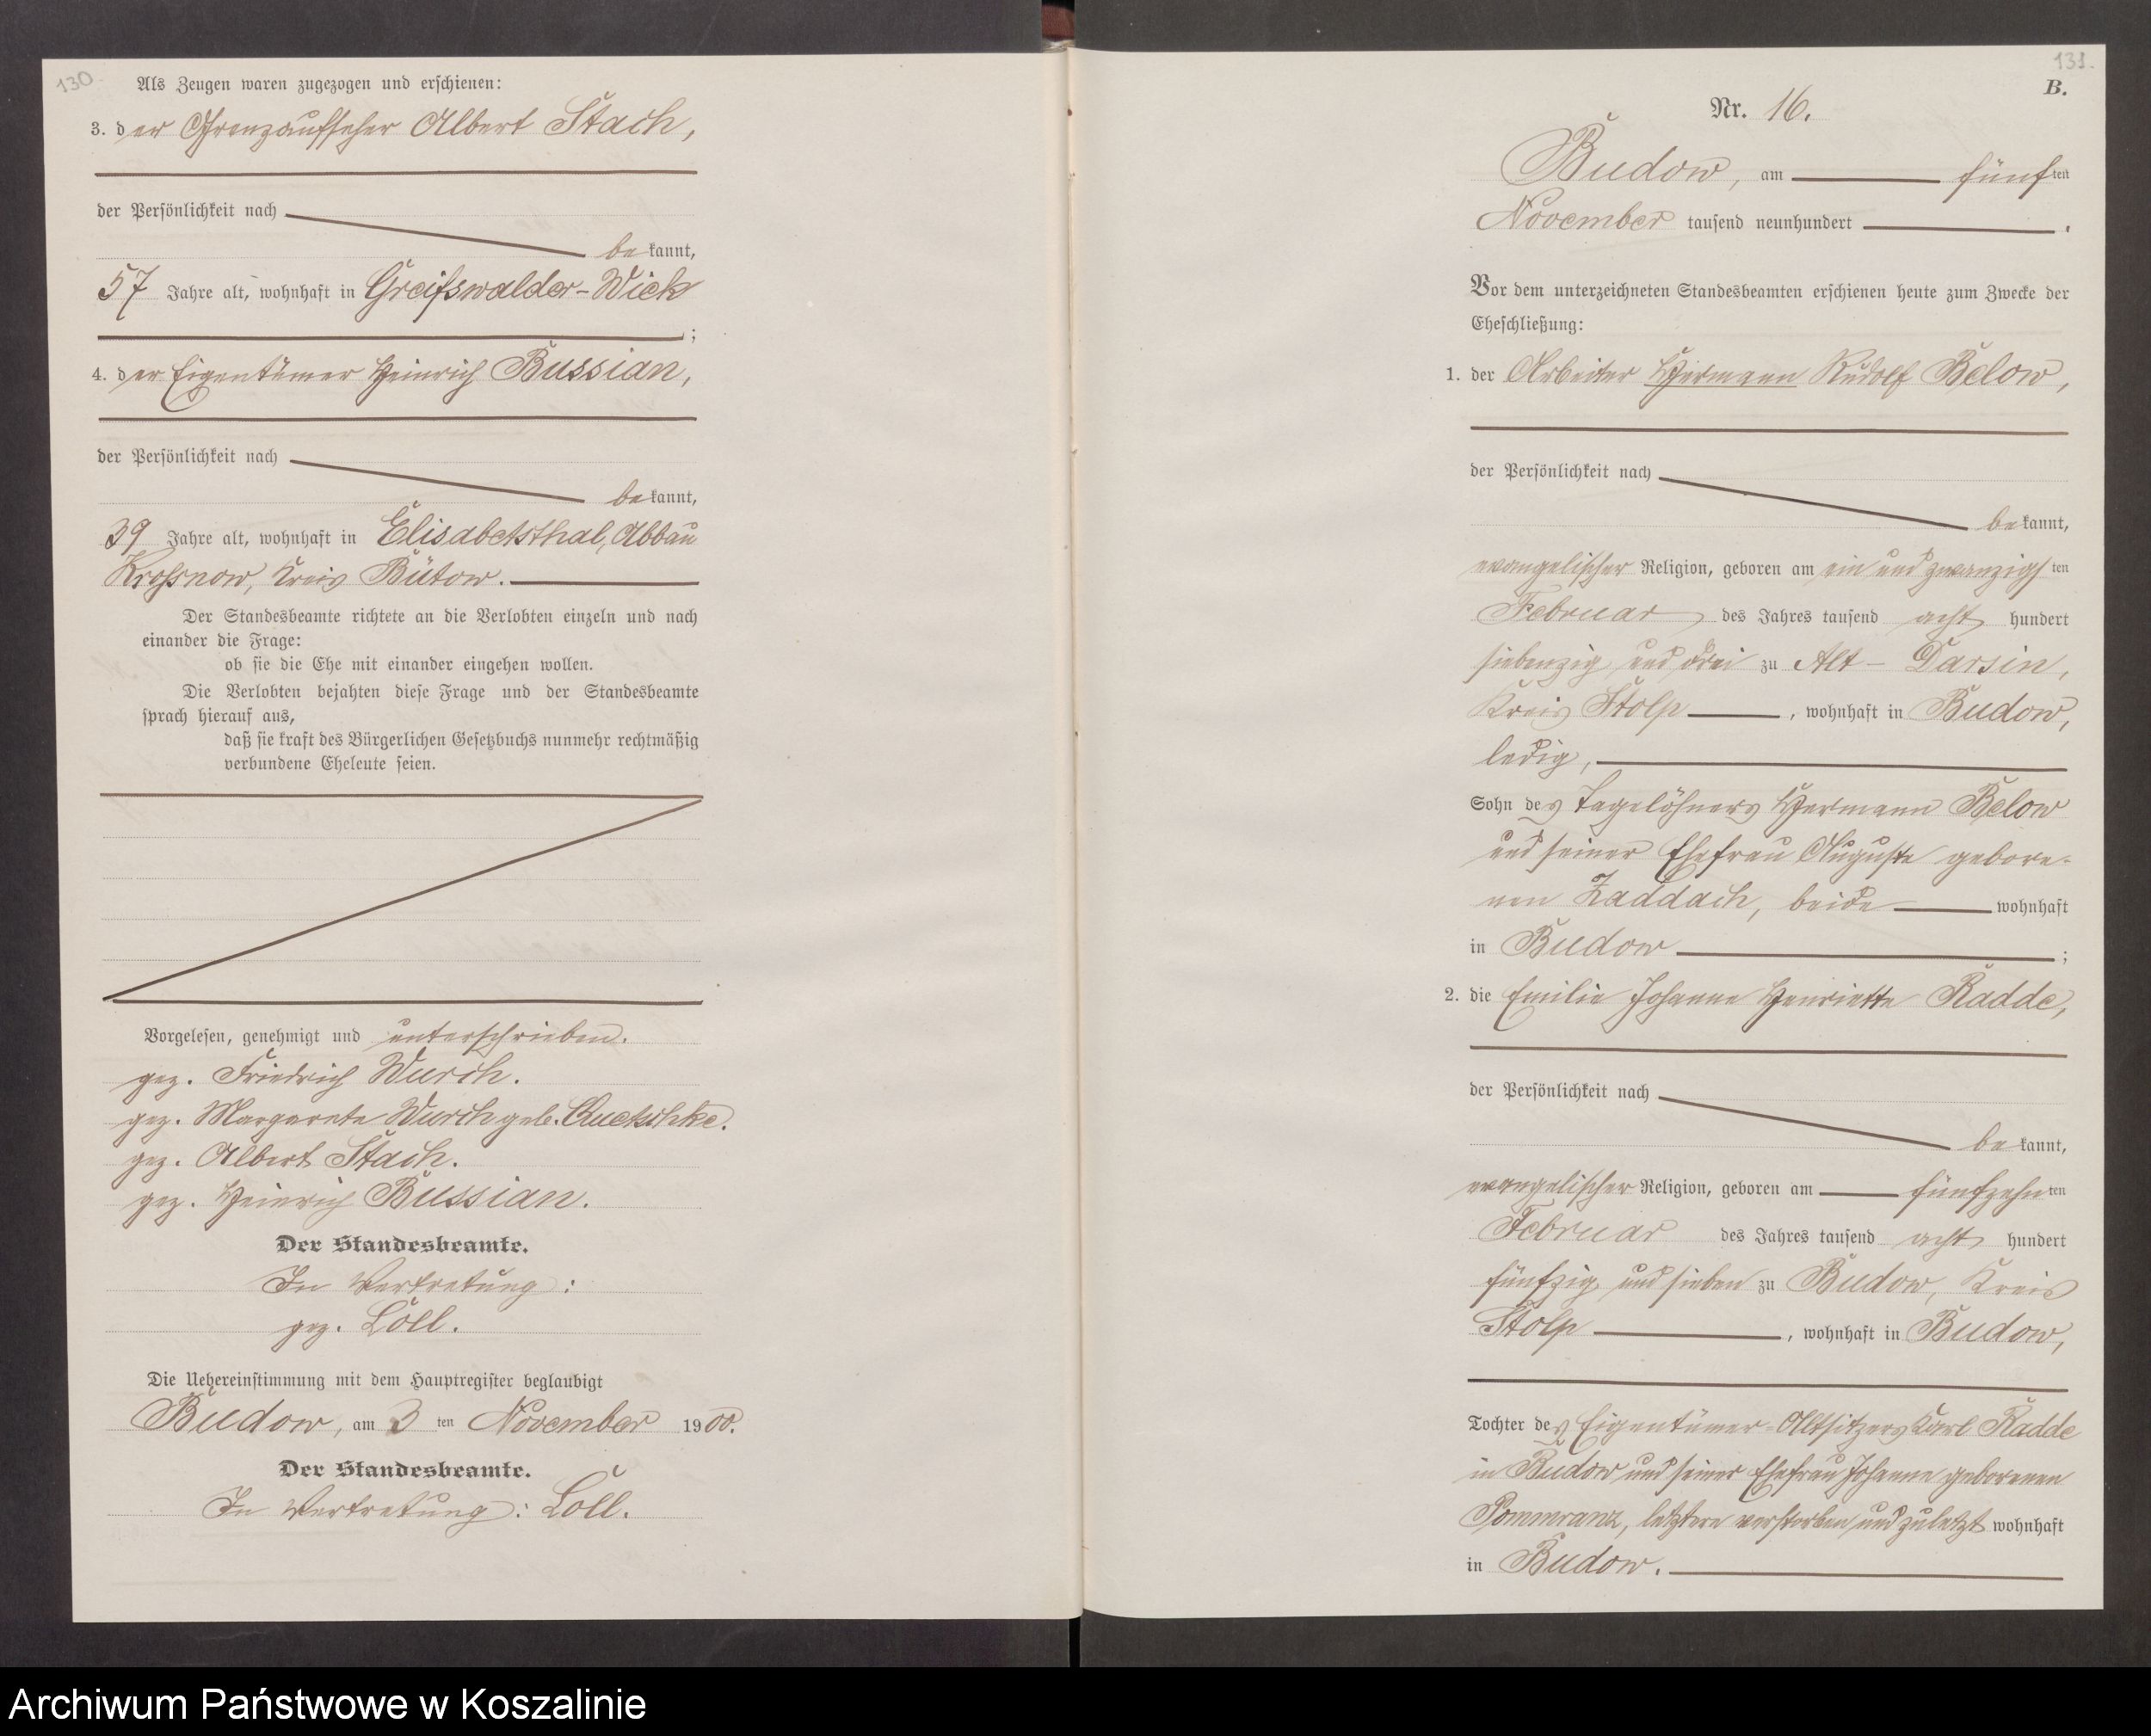 130
Als Zeugen waren zugezogen und erschienen:
3. der Grenzaufseher Albert Stach,
der Persönlichkeit nach
bekannt,
57 Jahre alt, wohnhaft in Greifswalder-Wiek
;
4. der Eigentümer Heinrich Bussian,
der Persönlichkeit nach
bekannt,
39 Jahre alt, wohnhaft in Elisabetsthal, Abbau
Kroßnow, Kreis Bütow.
Der Standesbeamte richtete an die Verlobten einzeln und nach
einander die Frage:
ob sie die Ehe mit einander eingehen wollen.
Die Verlobten bejahten diese Frage und der Standesbeamte
sprach hierauf aus,
daß sie kraft des Bürgerlichen Gesetzbuchs nunmehr rechtmäßig
verbundene Eheleute seien.
Vorgelesen, genehmigt und unterschrieben.
gez. Friedrich Wurch.
gez. Margarete Wurch geb. Quetschke.
gez. Albert Stach.
gez. Heinrich Bussian.
Der Standesbeamte.
In Vertretung:
gez. Löll.
Die Uebereinstimmung mit dem Hauptregister beglaubigt
Budow, am 3 ten November 1900.
Der Standesbeamte.
In Vertretung: Löll.
131.
B.
Nr. 16.
Budow, am fünften
November tausend neunhundert .
Vor dem unterzeichneten Standesbeamten erschienen heute zum Zwecke der
Eheschließung:
1. der Arbeiter Hermann Rudolf Below,
der Persönlichkeit nach
bekannt,
evangelischer Religion, geboren am ein und zwanzigsten
Februar des Jahres tausend acht hundert
siebenzig und drei zu Alt-Darsin,
Kreis Stolp, wohnhaft in Budow,
ledig,
Sohn des Tagelöhners Hermann Below
und seiner Ehefrau Auguste gebore-
nen Zaddach, beide wohnhaft
in Budow ;
2. die Emilie Johanne Henriette Radde,
der Persönlichkeit nach
bekannt,
evangelischer Religion, geboren am fünfzehnten
Februar des Jahres tausend acht hundert
fünfzig und sieben zu Budow, Kreis
Stolp, wohnhaft in Budow,
Tochter des Eigentümer-Altsitzers Karl Radde
in Budow und seiner Ehefrau Johanne geborenen
Pommranz, letztere verstorben und zuletzt wohnhaft
in Budow.
Archiwum Państwowe w Koszalinie